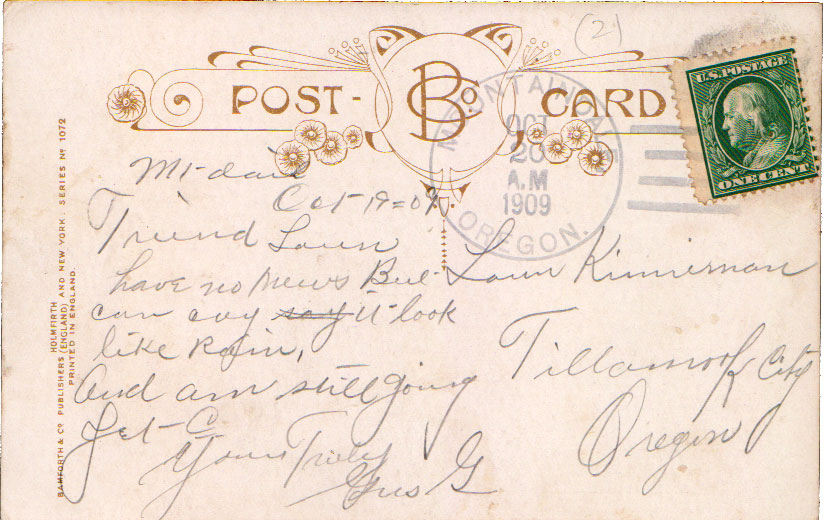 (2)
POST-
BCo
CARD
U.S. POSTAGE
ONE CENT
MOUNTAINDALE
OCT
20
A.M
1909
OREGON.
Mt-dail
Oct-19=09
Friend Loun
have no news But-
can cay say it-look
like Rain,
And am still going
yet- C
Yours Truly
Gus G
Loun Kinnerman
Tillamook City
Oregon
HOLMFIRTH
BAMFORTH & Co PUBLISHERS (ENGLAND) AND NEW YORK. SERIES No 1072
PRINTED IN ENGLAND.